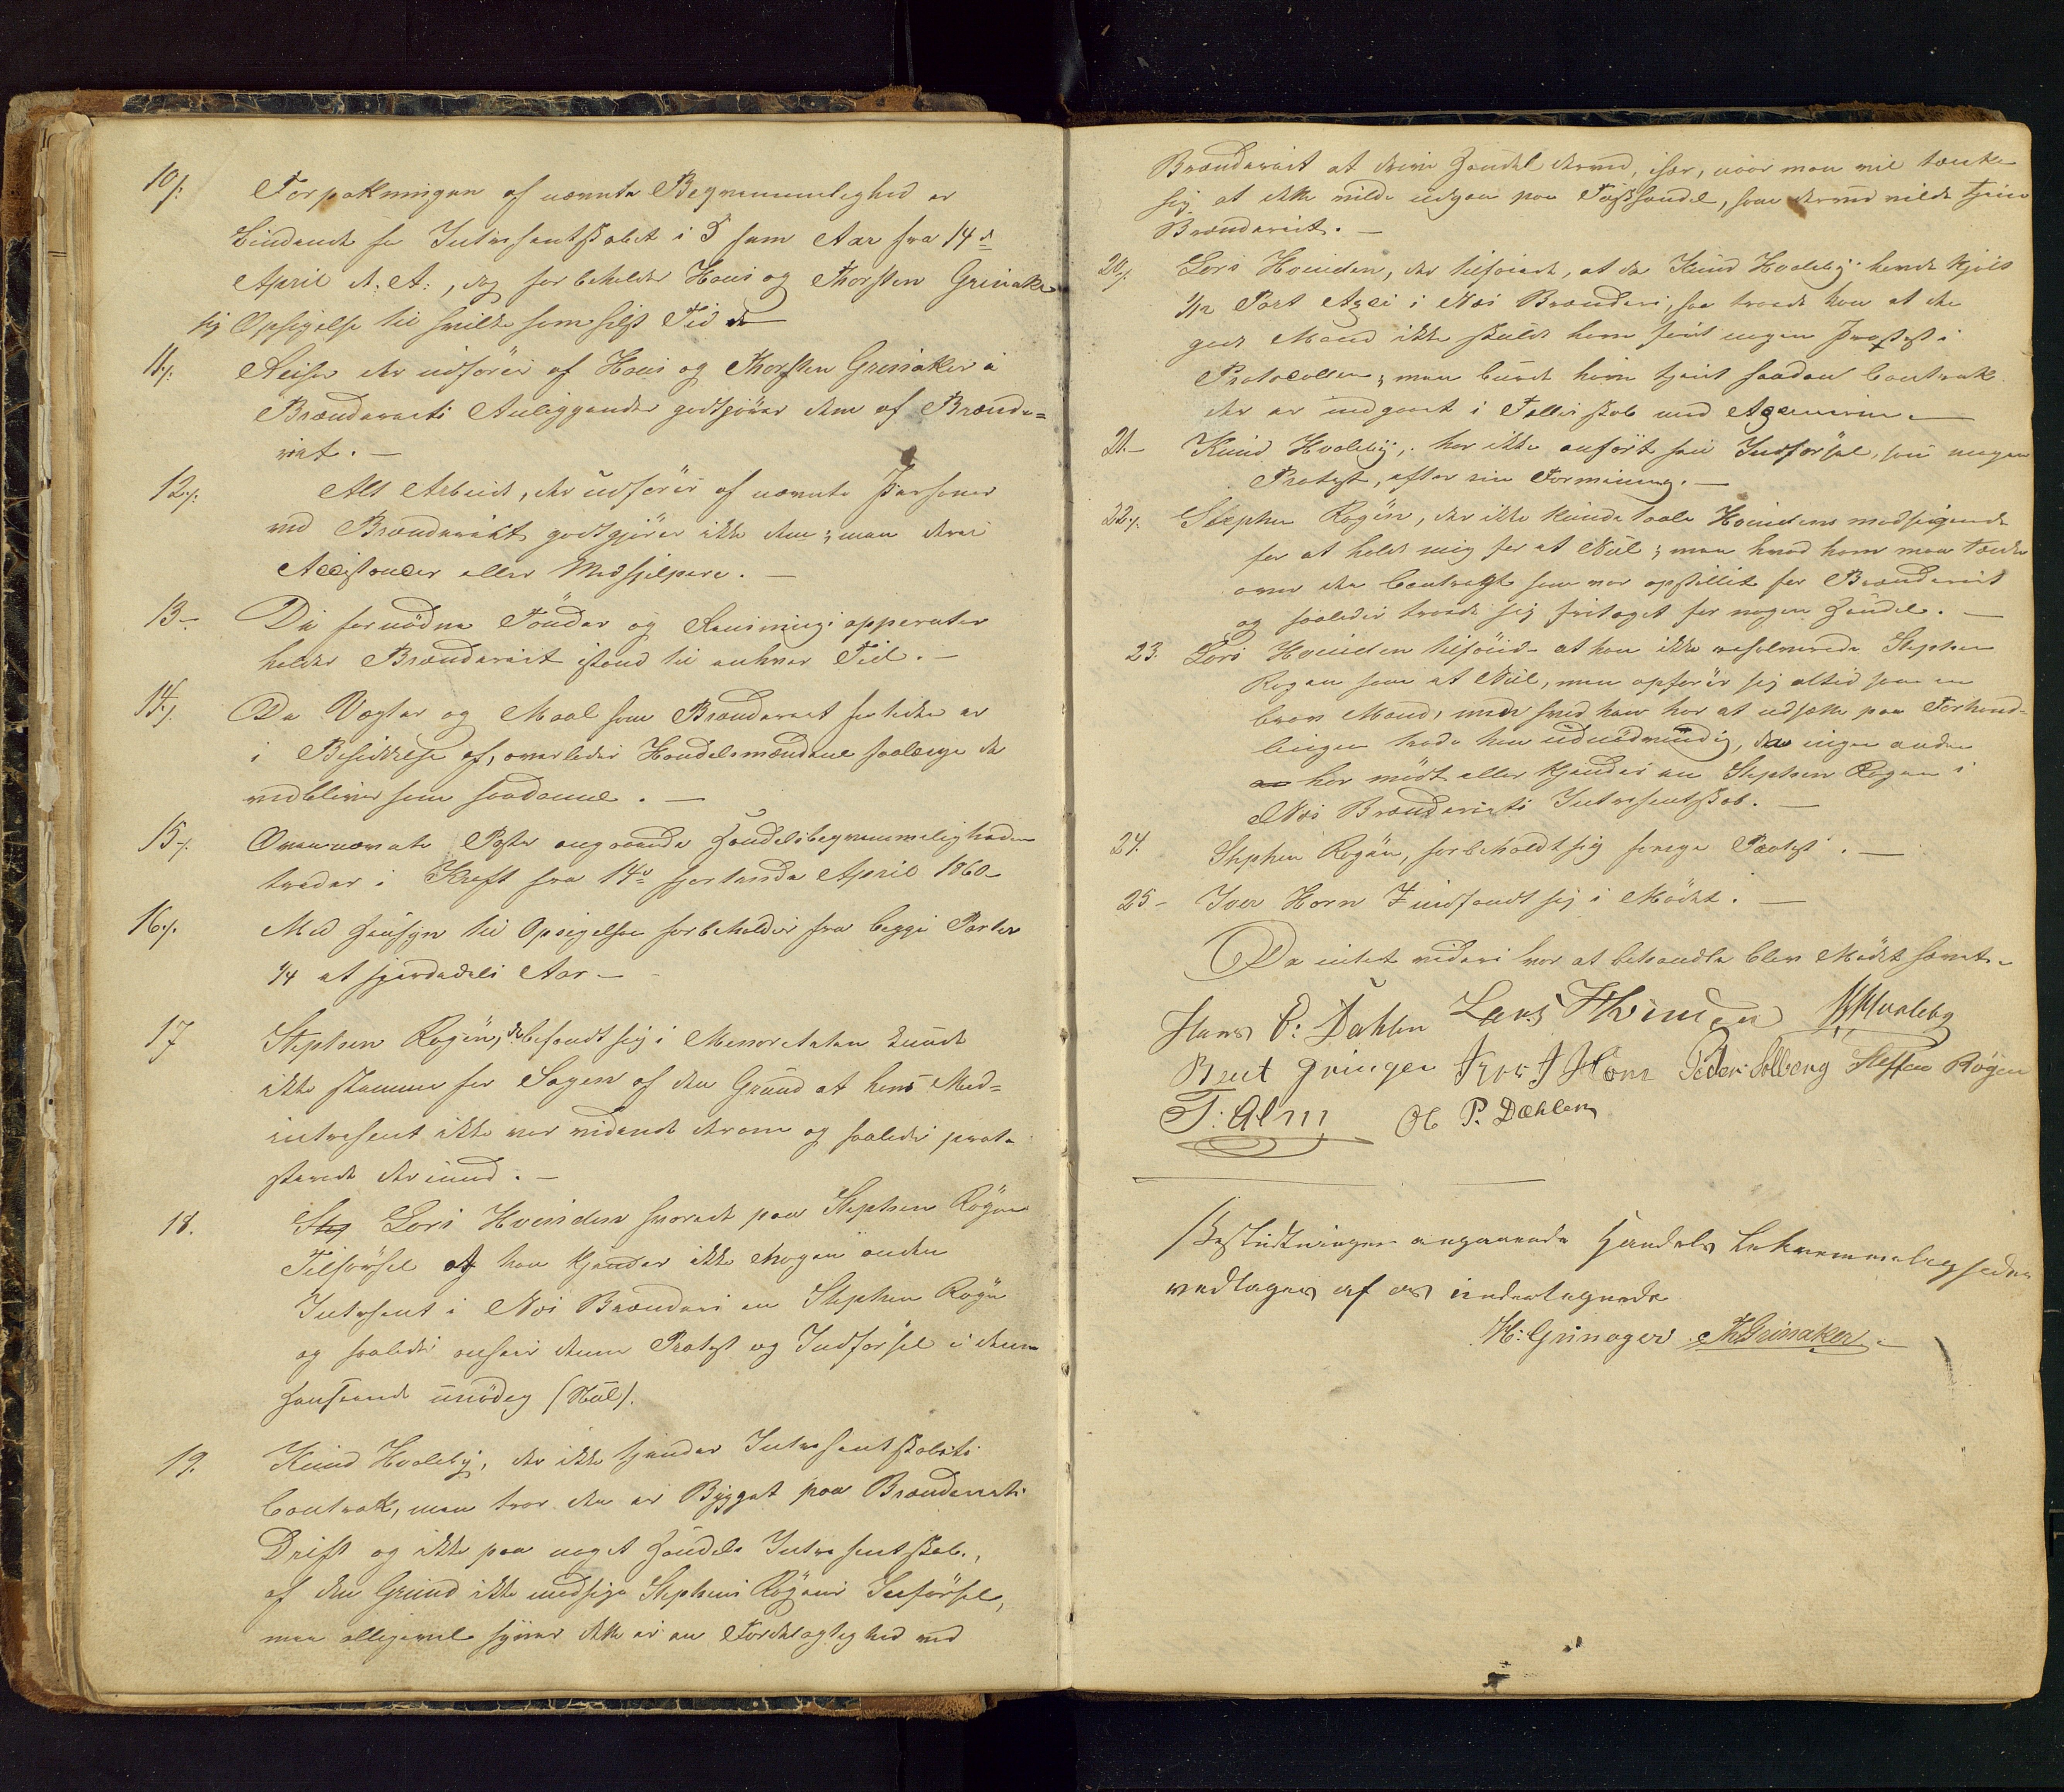 10/. Forpakningen af nævnte Beqvemmelighed er
bindende for Intresentskabet i 5 fem Aar fra 14de
April d. A:, dog forbeholder Hans og Thorsten Grinaker
sig Opsigelse til hvilkesomhelst Tid
11/. Reiser der udføres af Hans og Thorsten Grinaker i
Brænderiets Anliggender godtgjøres dem af Brænde=
riet. —
12/. Alt Arbeide, der udføres af nævnte Personer
ved Brænderiet godtgjøres ikke dem; men deres
Assistencer eller Medhjelpere. —
13— De fornødne Tønder og Rensnings apparater
holder Brænderiet istand til enhver Tid. —
14/. De Vægter og Maal som Brænderiet for tiden er
i Besiddelse af, overlades Handelsmændene saalænge de
vedbliver som saadanne. —
15/. Ovennævnte Poster angaaende Handelsbeqvemmeligheden
træder i Kraft fra 14de fjortende April 1860—
16/. Med Hensyn til Opsigelsen forbeholdes fra begge Parter
1/4 et fjerdedels Aar —
17 Stephen Rogen, der befandt sig i kunde
ikke stemme for Sagen af den Grund at hans Med=
intresent ikke var vidende derom og saaledes prote
sterede derimod. —
18. Step Lars Hvinden svarede paa Stephen Røgens
Tilførsel at han kjender ikke Nogen anden
Intresent i Næs Brænderi en Stephen Røgen
og saaledes ansees denne Protest og Indførsel i denne
Henseende unødig (Nul).
19. Knud Hvaleby, der ikke kjender Intresentskabets
Contrakt, men tror den er Bygget paa Brænderiets
Drift og ikke paa noget Handels Intresentskab,
af den Grund ikke modsige Stephens Røgens Indførsel,
men alligevel synes dette er en Fordelagtighed ved
Brænderiet at drive Handel dermed, især, naar man vil tænke
sig at dette vilde udgaa paa Fæhandel, som dermed vilde tjene
Brænderiet. —
20/. Lars Hvinden, der tilføiede, at da Knud Hvaleby havde kjøbt
1/12 Part Axei i Næs Brænderi, saa troede han at den
gode Mand ikke skulde have ført nogen Protest i
Protocollen; men burde have kjent saadan Contrakt
der er indgaaet i Fællesskab med
21.— Knud Hvaleby, har ikke anført sin Indførsel, som nogen
Protest, efter sin Formening. —
22./. Stephen Rogen, der ikke kunde taale Hvindens modsigende
for at holde mig for et Nul; men hvad ham man tænke
over den Contrakt som var opstillet for Brænderiet
og saaledes troede sig fritaget for nogen Handel. —
23. Lars Hvinden tilføied at han ikke Stephen
Rogen som et Nul, men opfører sig altid som en
brav Mand, men hvad han har at udsætte paa Forhand=
lingen troede han unødvendig, da ingen anden
har mødt eller kjendes en Stephen Rogen i
Næs Brænderiets Intresentskab. —
24. Stephen Rogen, forbeholdt sig forrige Protest. —
25— Iver Horn indfandt sig i Mødet. —
Da intet videre var at behandle blev Mødet hævet. —
Hans C: Dahlen Lars Hvinden K Hvaleby
Brut Gringer Iver I Horn Peder Solberg Steffen Røgen
T: Alm Ol P. Dæhlen
Beslutninger angaaende Handels bekvemmeligheden
vedtages af os undertegnede
H: Grinager. Th Grinaker —